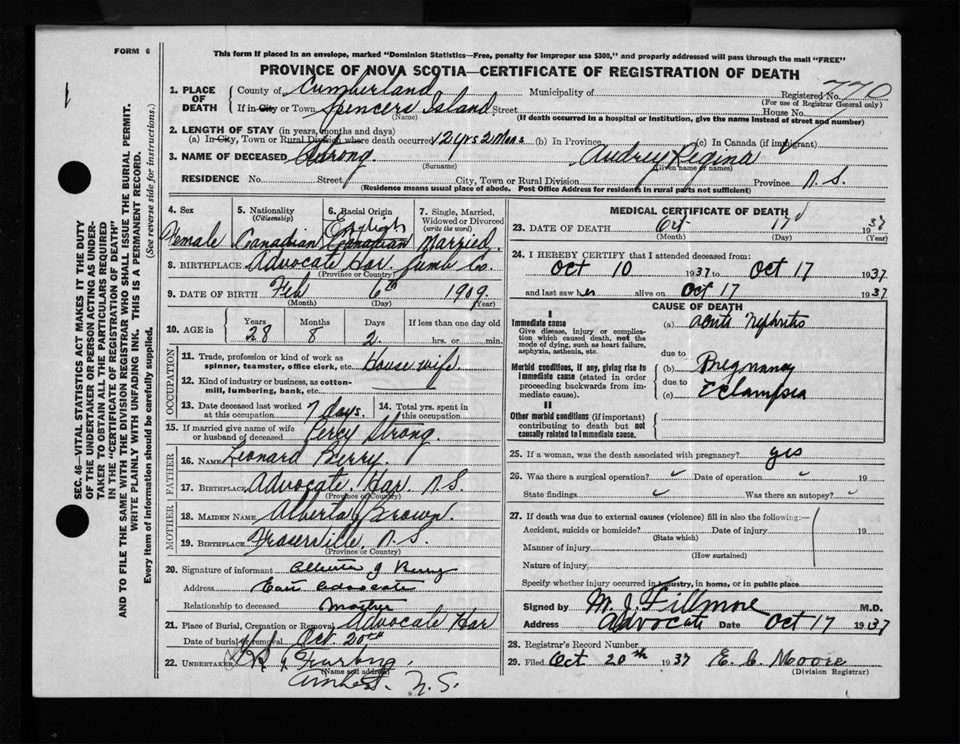 FORM 6
This form if placed in an envelope, marked "Dominion Statistics—Free, penalty for improper use $300," and properly addressed will pass through the mail "FREE"
PROVINCE OF NOVA SCOTIA—CERTIFICATE OF REGISTRATION OF DEATH
SEC. 46—VITAL STATISTICS ACT MAKES IT THE DUTY
OF THE UNDERTAKER OR PERSON ACTING AS UNDER-
TAKER TO OBTAIN ALL THE PARTICULARS REQUIRED
IN THE "CERTIFICATE OF REGISTRATION OF DEATH"
AND TO FILE THE SAME WITH THE DIVISION REGISTRAR WHO SHALL ISSUE THE BURIAL PERMIT.
WRITE PLAINLY WITH UNFADING INK. THIS IS A PERMANENT RECORD.
Every item of information should be carefully supplied. (See reverse side for instructions.)
1. PLACE OF DEATH County of Cumberland Municipality of Registered No. 770
(For use of Registrar General only)
If in City or Town Spencers Island Street House No.
(Name) (If death occurred in a hospital or institution, give the name instead of street and number)
2. LENGTH OF STAY (in years, months and days)
(a) In City, Town or Rural Division where death occurred 12 yrs 2 Mons (b) In Province (c) In Canada (if immigrant)
3. NAME OF DECEASED Strong. Audrey Regina
(Surname) (Given name or names)
RESIDENCE No. Street City, Town or Rural Division Province N.S.
(Residence means usual place of abode. Post Office Address for residents in rural parts not sufficient)
4. Sex 5. Nationality (Citizenship) 6. Racial Origin 7. Single, Married, Widowed or Divorced (write the word)
Female Canadian English Canadian Married
8. BIRTHPLACE Advocate Har. Cumb Co.
(Province or Country)
9. DATE OF BIRTH Feb 6th 1909
(Month) (Day) (Year)
10. AGE in Years Months Days If less than one day old
28 8 2 hrs. or min.
OCCUPATION
11. Trade, profession or kind of work as spinner, teamster, office clerk, etc. House wife
12. Kind of industry or business, as cotton-mill, lumbering, bank, etc.
13. Date deceased last worked at this occupation 7 days. 14. Total yrs. spent in this occupation
15. If married give name of wife or husband of deceased Percy Strong.
FATHER
16. NAME Leonard Berry.
17. BIRTHPLACE Advocate, Har. N.S.
(Province or Country)
MOTHER
18. MAIDEN NAME Alberta Brown.
19. BIRTHPLACE Fraserville, N.S.
(Province or Country)
20. Signature of informant Alberta J Berry
Address East Advocate
Relationship to deceased Mother
21. Place of Burial, Cremation or Removal Advocate Har
Date of burial or removal Oct. 20th
22. UNDERTAKER
(Name and address)
Amherst. N.S.
MEDICAL CERTIFICATE OF DEATH
23. DATE OF DEATH Oct 17 1937
(Month) (Day) (Year)
24. I HEREBY CERTIFY that I attended deceased from:
Oct 10 1937 to Oct 17 1937
and last saw her alive on Oct 17 1937
CAUSE OF DEATH
I
Immediate cause (a) Acute Nephritis
Give disease, injury or complication which caused death, not the mode of dying, such as heart failure, asphyxia, asthenia, etc.
due to
Morbid conditions, if any, giving rise to immediate cause (stated in order proceeding backwards from immediate cause). (b) Pregnancy
due to
(c) Eclampsia
II
Other morbid conditions (if important) contributing to death but not causally related to immediate cause.
25. If a woman, was the death associated with pregnancy? yes
26. Was there a surgical operation? Date of operation 19
State findings Was there an autopsy?
27. If death was due to external causes (violence) fill in also the following:—
Accident, suicide or homicide? Date of injury 19
(State which)
Manner of injury
(How sustained)
Nature of injury
Specify whether injury occurred in industry, in home, or in public place
Signed by M. J. Fillmore M.D.
Address Advocate Date Oct 17 1937
28. Registrar's Record Number
29. Filed Oct 20th 1937 E. C. Moore
(Division Registrar)